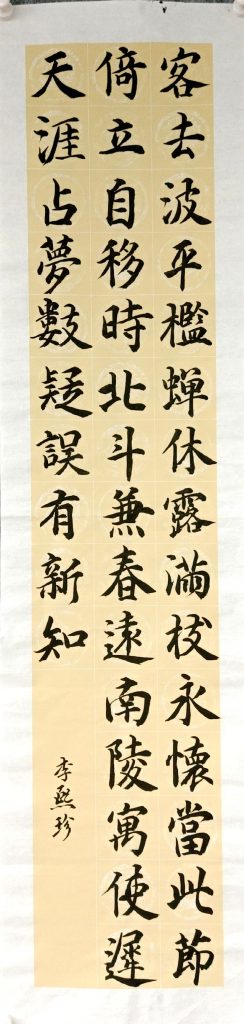 客去波平檻蝉休露滿枝永懷當此節
倚立自移時北斗兼春遠南陵寓使遲
天涯占夢數疑誤有新知
李熙珍